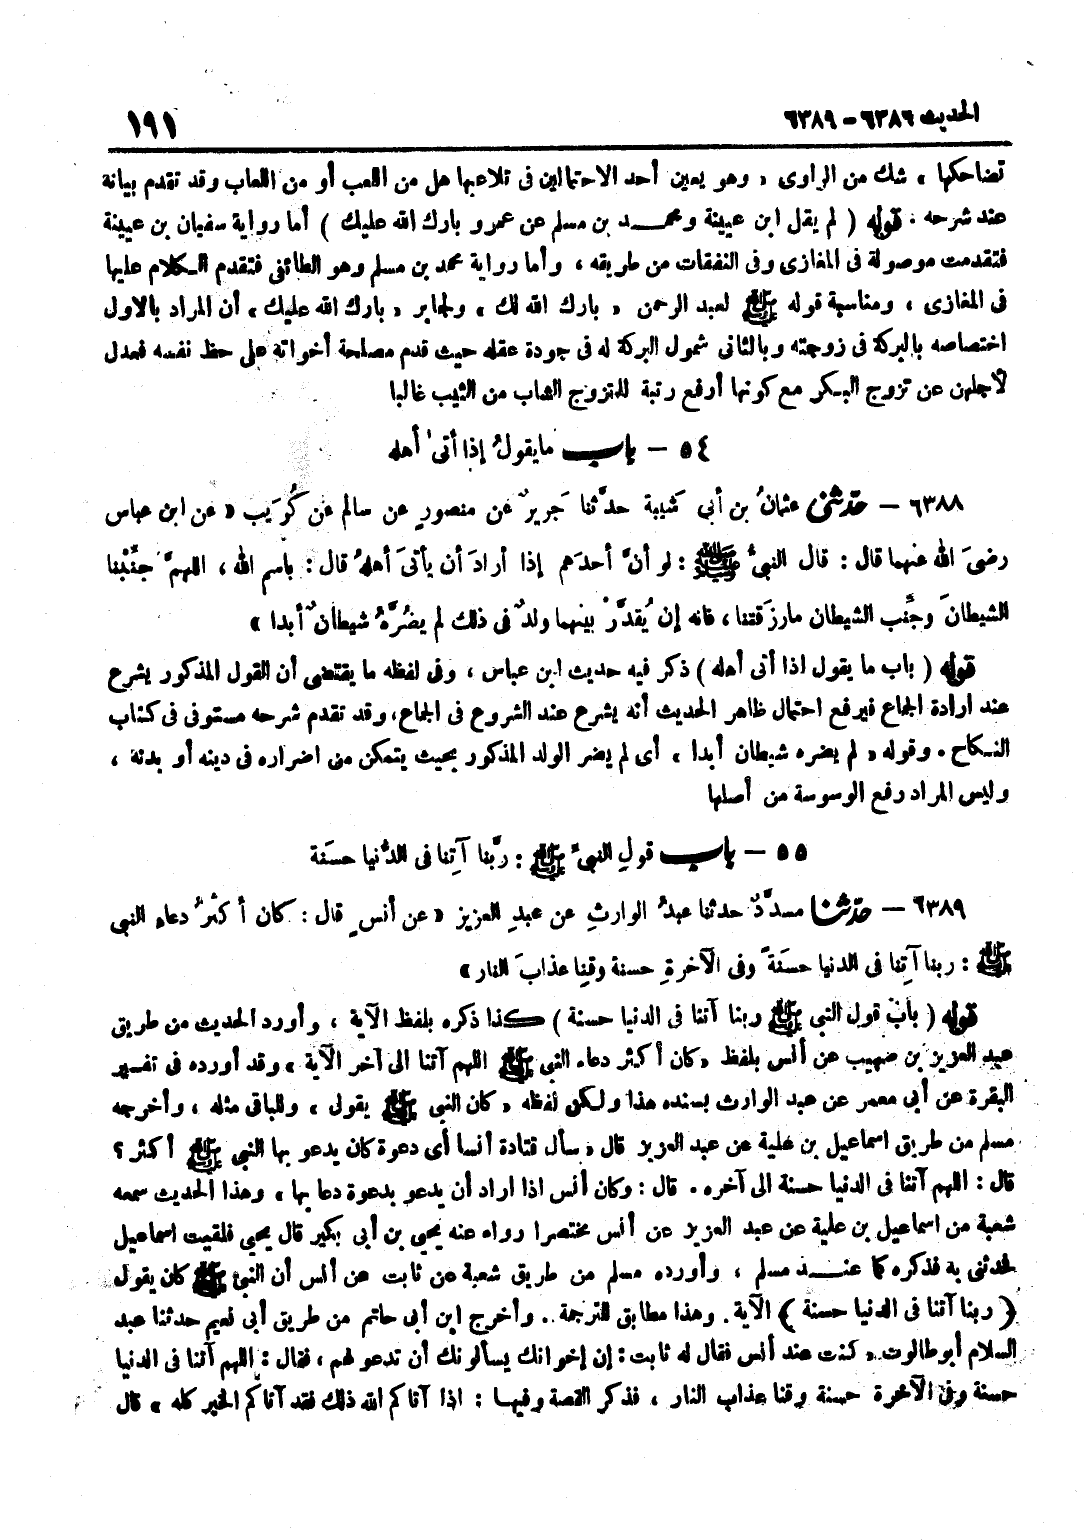 الحديث ٦٣٨٦ – ٦٣٨٩
١٩١
تضاحكها » شك من الراوى « وهو يعين أحد الاحتمالين فى تلاعبها هل من اللعب أو من اللعاب وقد تقدم بيانه
عند شرحه . قوله ( لم يقل ابن عيينة ومحمــد بن مسلم عن عمرو بارك الله عليك ) أما رواية سفيان بن عيينة
فتقدمت موصولة فى المغازى وفى النفقات من طريقه ، وأما رواية محمد بن مسلم وهو الطائفى فتقدم الكلام عليها
فى المغازى ، ومناسبة قوله ﷺ لعبد الرحمن « بارك الله لك » ولجابر « بارك الله عليك » أن المراد بالاول
اختصاصه بالبركة فى زوجته وبالثانى شمول البركة له فى جودة عقله حيث قدم مصلحة أخواته على حظ نفسه فعدل
لأجلهن عن تزوج البكر مع كونها أرفع رتبة للمتزوج الشاب من الثيب غالبا
٥٤ – باب ما يقولُ إذا أتىٰ أهله
٦٣٨٨ – حدّثنى عثمانُ بن أبي شَيبة حدَّثنا جَريرٌ عن منصورٍ عن سالم عن كُرَيب « عن ابن عباس
رضىَ الله عنهما قال : قال النبىُّ ﷺ : لو أنَّ أحدَهم إذا أرادَ أن يأتىَ أهلهُ قال : باسم الله ، اللهمَّ جنِّبْنا
الشيطانَ وجنِّب الشيطان مارزَقتنا ، فانه إن يُقدَّرْ بينهما ولدٌ فى ذلك لم يضُرَّهُ شيطانٌ أبدا »
قوله ( باب ما يقول اذا أتى أهله ) ذكر فيه حديث ابن عباس ، وفى لفظه ما يقتضى أن القول المذكور يشرع
عند ارادة الجماع فيرفع احتمال ظاهر الحديث أنه يشرع عند الشروع فى الجماع، وقد تقدم شرحه مستوفى فى كتاب
النكاح . وقوله « لم يضره شيطان أبدا » أى لم يضر الولد المذكور بحيث يتمكن من اضراره فى دينه أو بدنه ،
وليس المراد رفع الوسوسة من أصلها
٥٥ – باب قولِ النبىِّ ﷺ : ربَّنا آتِنا فى الدُّنيا حسَنة
٦٣٨٩ – حدّثنا مسدَّدٌ حدثنا عبدُ الوارثِ عن عبدِ العزيز « عن أنسٍ قال : كان أكثرُ دعاء النبى
ﷺ : ربنا آتِنا فى الدنيا حسَنةً وفى الآخرةِ حسنة وقنِا عذابَ النار »
قوله ( باب قول النبى ﷺ ربنا آتنا فى الدنيا حسنة ) كذا ذكره بلفظ الآية ، وأورد الحديث من طريق
عبد العزيز بن صهيب عن أنس بلفظ « كان أكثر دعاء النبى ﷺ اللهم آتنا الى آخر الآية » وقد أورده فى تفسير
البقرة عن أبى معمر عن عبد الوارث بسنده هذا ولكن لفظه « كان النبى ﷺ يقول » والباقى مثله ، وأخرجه
مسلم من طريق اسماعيل بن علية عن عبد العزيز قال « سأل قتادة أنسا أى دعوة كان يدعو بها النبى ﷺ أكثر ؟
قال : اللهم آتنا فى الدنيا حسنة الى آخره . قال : وكان أنس اذا اراد أن يدعو بدعوة دعا بها » وهذا الحديث سمعه
شعبة من اسماعيل بن علية عن عبد العزيز عن أنس مختصرا رواه عنه يحيى بن أبى بكير قال يحيى فلقيت اسماعيل
فحدثنى به فذكره كما عنــد مسلم ، وأورده مسلم من طريق شعبة عن ثابت عن أنس أن النبى ﷺ كان يقول
( ربنا آتنا فى الدنيا حسنة ) الآية . وهذا مطابق للترجمة . وأخرج ابن أبى حاتم من طريق أبى نعيم حدثنا عبد
السلام أبو طالوت « كنت عند أنس فقال له ثابت : إن إخوانك يسألونك أن تدعو لهم ، فقال : اللهم آتنا فى الدنيا
حسنة وفى الآخرة حسنة وقنا عذاب النار ، فذكر القصة وفيها : اذا آتاكم الله ذلك فقد آتاكم الخير كله » قال